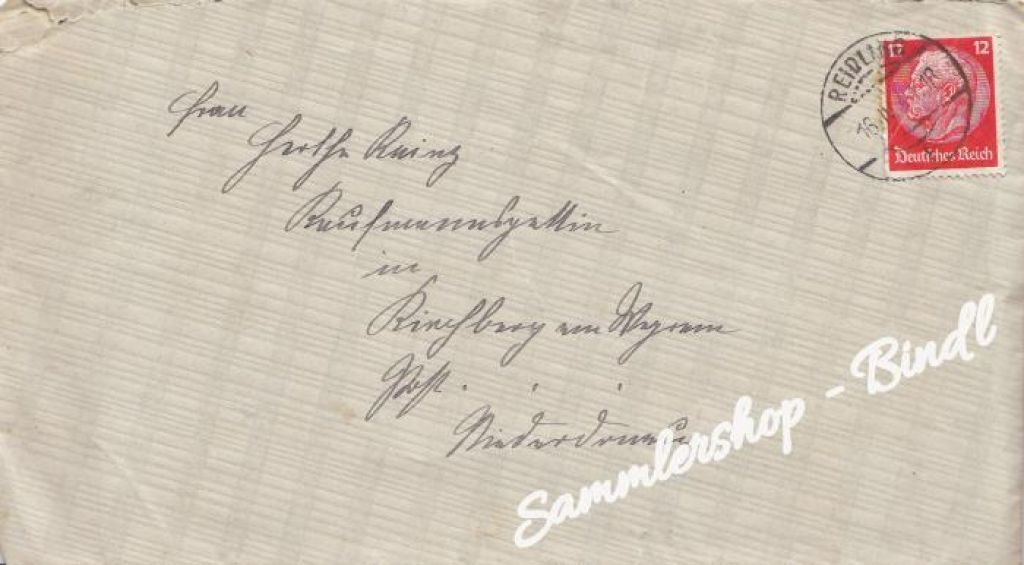 REIDLING
12 12
Deutsches Reich
Frau
Herthe Rainz
Kaufmannsgattin
in
Kirchberg am Wagram
Post . . .
Niederdonau
Sammlershop - Bindl